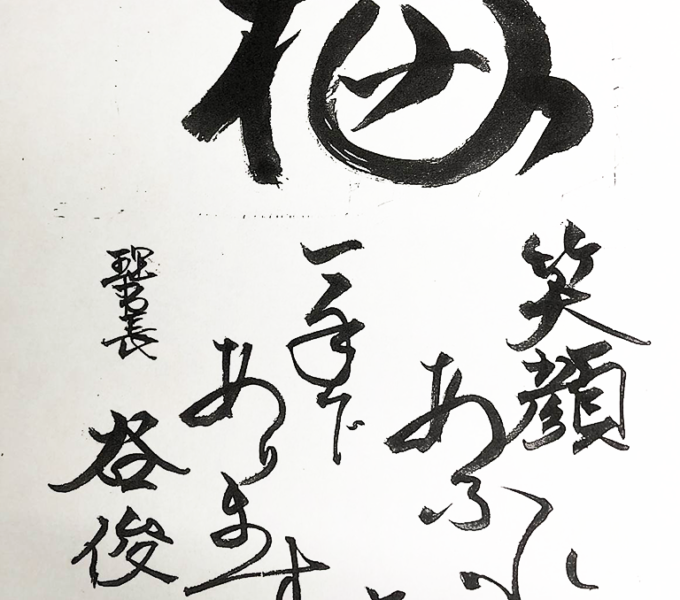 笑顔
あふれ
一年で
あります
理事長 谷俊